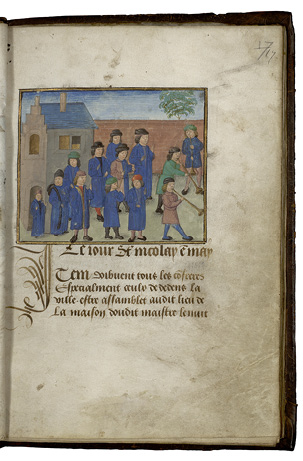 Le iour St nicolay en may
Item doibuent tous les cōfreres
Espécialment ceulx de dedens la
ville estre assamblet audit lieu de
La maison doudit maistre le nuit